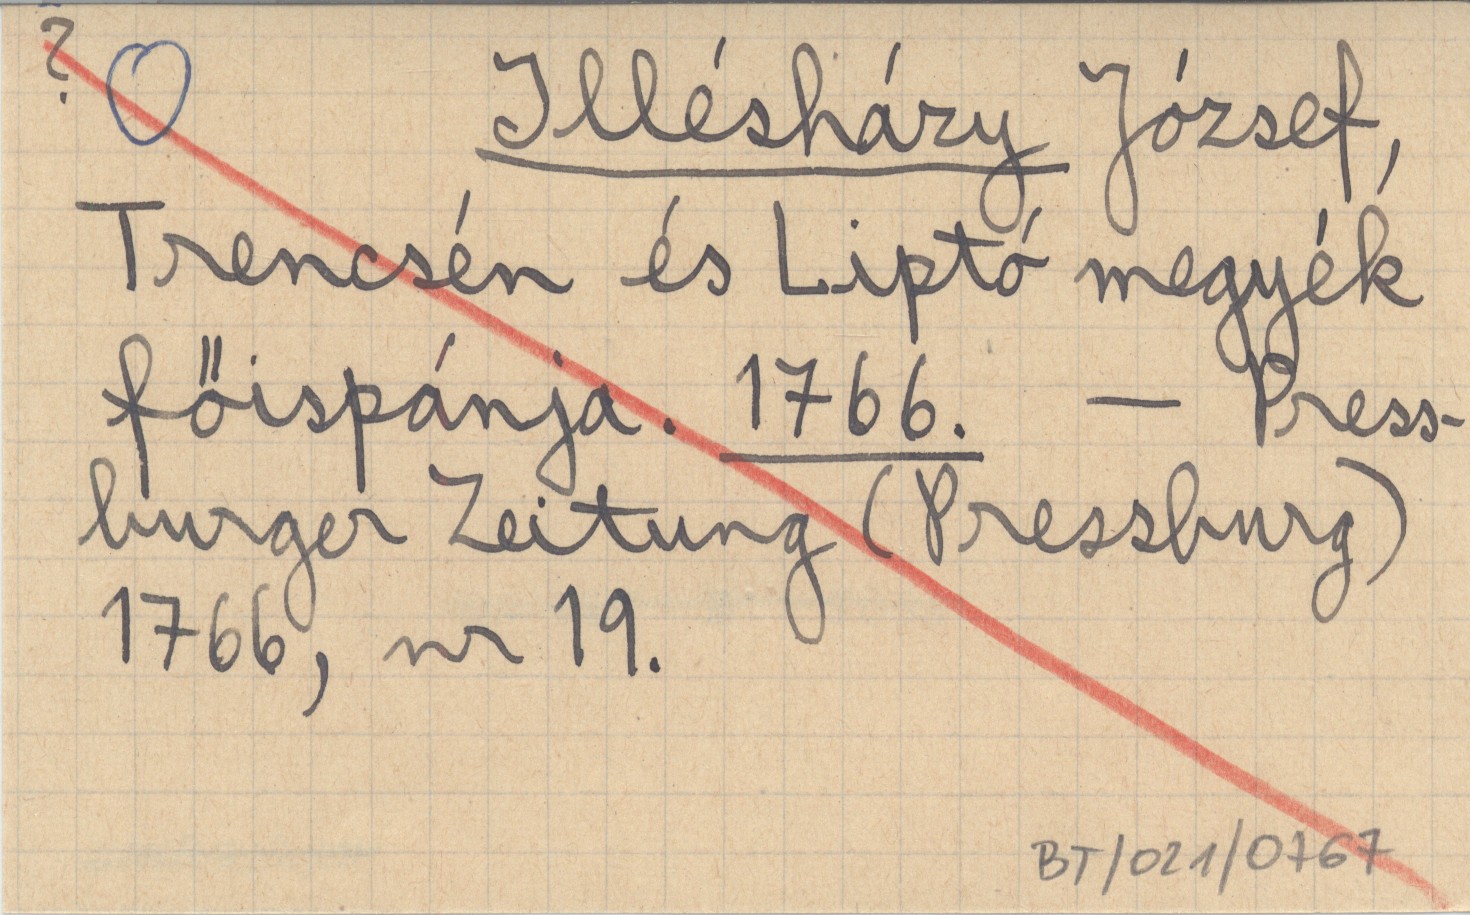 ?
Illésházy József,
Trencsén és Liptó megyék
főispánja. 1766. — Press-
burger Zeitung (Pressburg)
1766, nr 19.
BT/021/0767